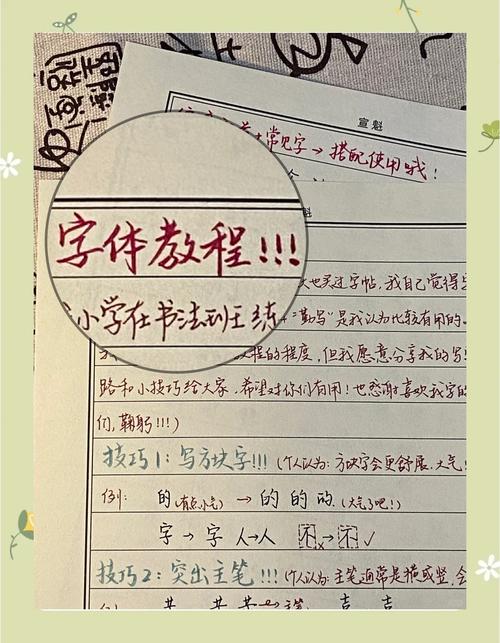 宣魁
常见字→搭配使用哦!
字体教程!!!
小学在书法班练
也买过字帖,我自己觉得
"勤写"是我认为比较有用的
程的程度,但我愿意分享我的写
路和小技巧给大家,希望对你们有用!也感谢喜欢我字的
们,鞠躬!!!)
技巧1:写方块字!!!(个人认为:方块字会更舒展、大气!
例:的(有点小气)→的 的 的(大气了吧!)
字→字 人→人 不×→不✓
技巧2:突出主笔!!!(个人认为:主笔通常是横或竖,会
共 共 共→ 吉 吉